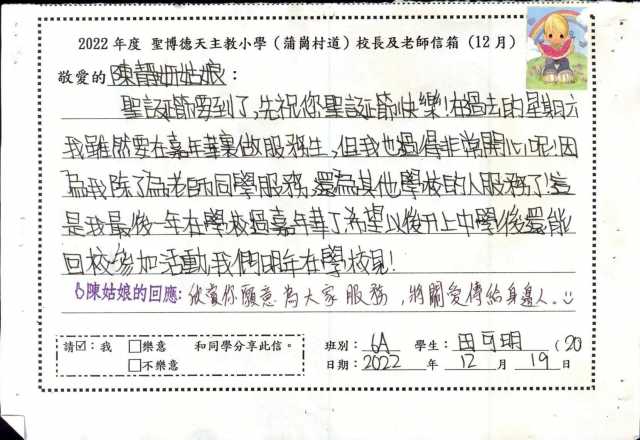 2022 年度 聖博德天主教小學（蒲崗村道）校長及老師信箱（12月）
敬愛的陳靜妍姑娘：
聖誕節要到了,先祝你聖誕節快樂!在過去的星期六
我雖然要在嘉年華裏做服務生,但我也過得非常開心呢!因
為我除了為老師同學服務,還為其他學校的人服務了!這
是我最後一年在學校過嘉年華了,希望以後升上中學後還能
回校參加活動,我們明年在學校見!
陳姑娘的回應: 欣賞你願意為大家服務,將關愛傳給身邊人。
請☑：我 □樂意 和同學分享此信。
□不樂意
班別：6A 學生：田可玥 (20
日期：2022 年 12 月 19 日